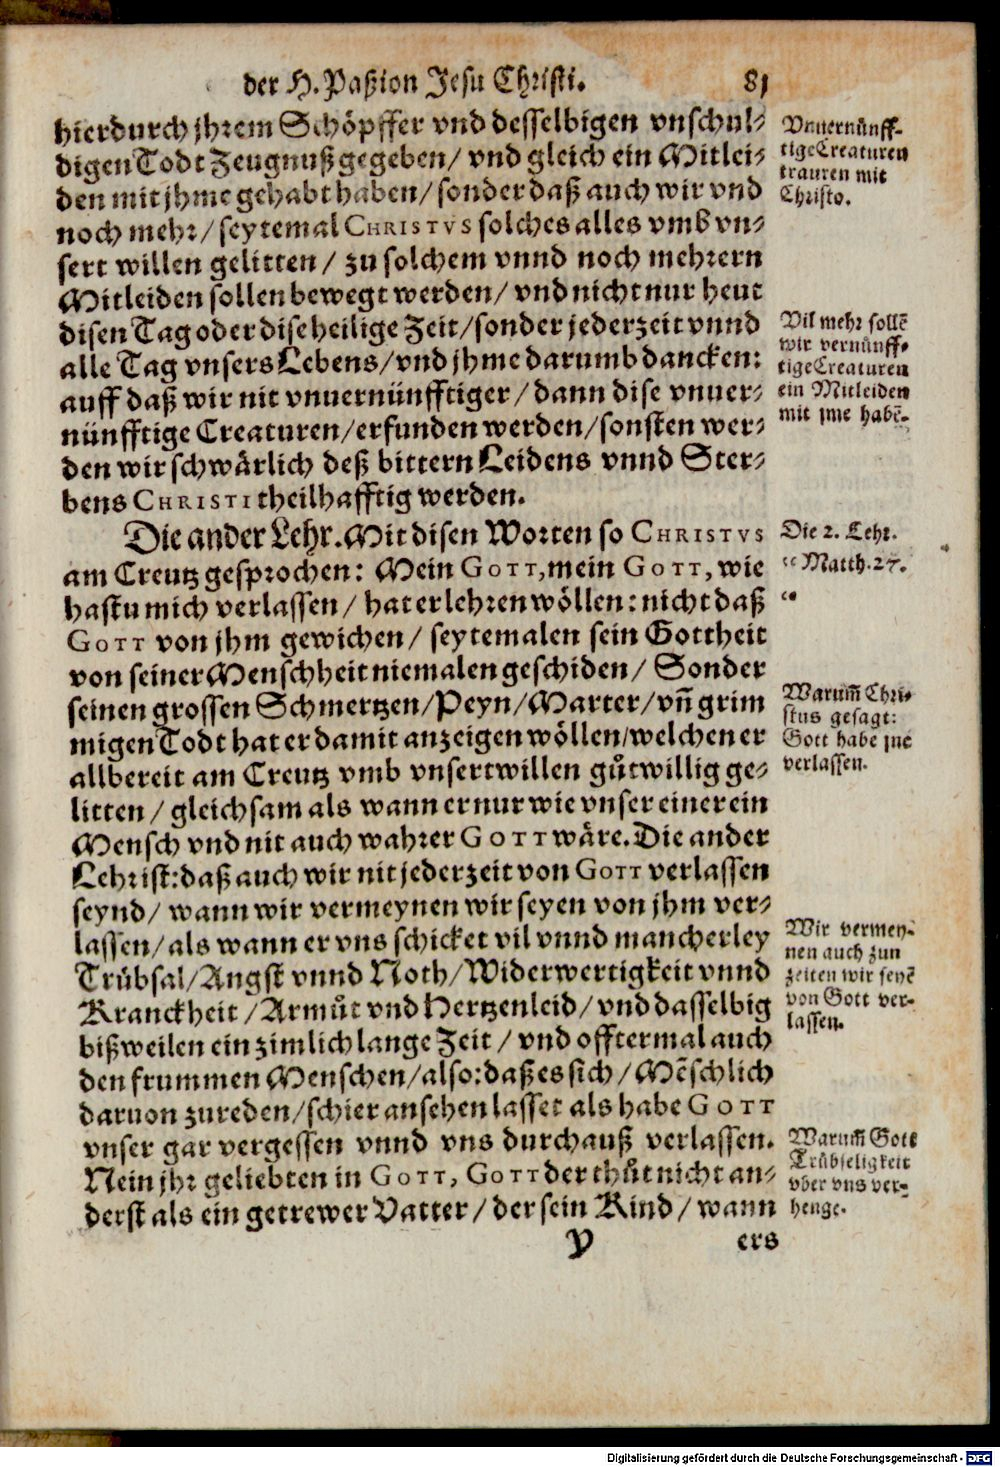 der H. Paßion Jesu Christi. 81
hierdurch jhrem Schöpffer vnd desselbigen vnschul-
digen Todt Zeugnuß gegeben / vnd gleich ein Mitlei-
den mit jhme gehabt haben / sonder daß auch wir vnd
noch mehr / seytemal CHRISTVS solches alles vmb vn-
sert willen gelitten / zu solchem vnnd noch mehrern
Mitleiden sollen bewegt werden / vnd nicht nur heut
disen Tag oder dise heilige Zeit / sonder jederzeit vnnd
alle Tag vnsers Lebens / vnd jhme darumb dancken:
auff daß wir nit vnuernünfftiger / dann dise vnuer-
nünfftige Creaturen / erfunden werden / sonsten wer-
den wir schwärlich deß bittern Leidens vnnd Ster-
bens CHRISTI theilhafftig werden.
Die ander Lehr. Mit disen Worten so CHRISTVS
am Creutz gesprochen: Mein GOTT, mein GOTT, wie
hastu mich verlassen / hat er lehren wöllen: nicht daß
GOTT von jhm gewichen / seytemalen sein Gottheit
von seiner Menschheit niemalen geschiden / Sonder
seinen grossen Schmertzen / Peyn / Marter / vñ grim
migen Todt hat er damit anzeigen wöllen / welchen er
allbereit am Creutz vmb vnsertwillen gůtwillig ge-
litten / gleichsam als wann er nur wie vnser einer ein
Mensch vnd nit auch wahrer GOTT wäre. Die ander
Lehr ist: daß auch wir nit jederzeit von GOTT verlassen
seynd / wann wir vermeynen wir seyen von jhm ver-
lassen / als wann er vns schicket vil vnnd mancherley
Trübsal / Angst vnnd Noth / Widerwertigkeit vnnd
Kranckheit / Armůt vnd Hertzenleid / vnd dasselbig
bißweilen ein zimlich lange Zeit / vnd offtermal auch
den frummen Menschen / also: daß es sich / Mẽschlich
daruon zureden / schier ansehen lasset als habe GOTT
vnser gar vergessen vnnd vns durchauß verlassen.
Nein jhr geliebten in GOTT, GOTT der thůt nicht an-
derst als ein getrewer Vatter / der sein Kind / wann
Y ers
Vnuernünff-
tige Creaturen
trauren mit
Christo.
Vil mehr sollẽ
wir vernünff-
tige Creaturen
ein Mitleiden
mit jme habẽ.
Die 2. Lehr.
“ Matth. 27.
“
Warum̃ Chri-
stus gesagt:
Gott habe jne
verlassen.
Wir vermey-
nen auch zun
zeiten wir seyẽ
von Gott ver-
lassen.
Warum̃ Gott
Trübseligkeit
vber vns ver-
henge.
Digitalisierung gefördert durch die Deutsche Forschungsgemeinschaft - DFG